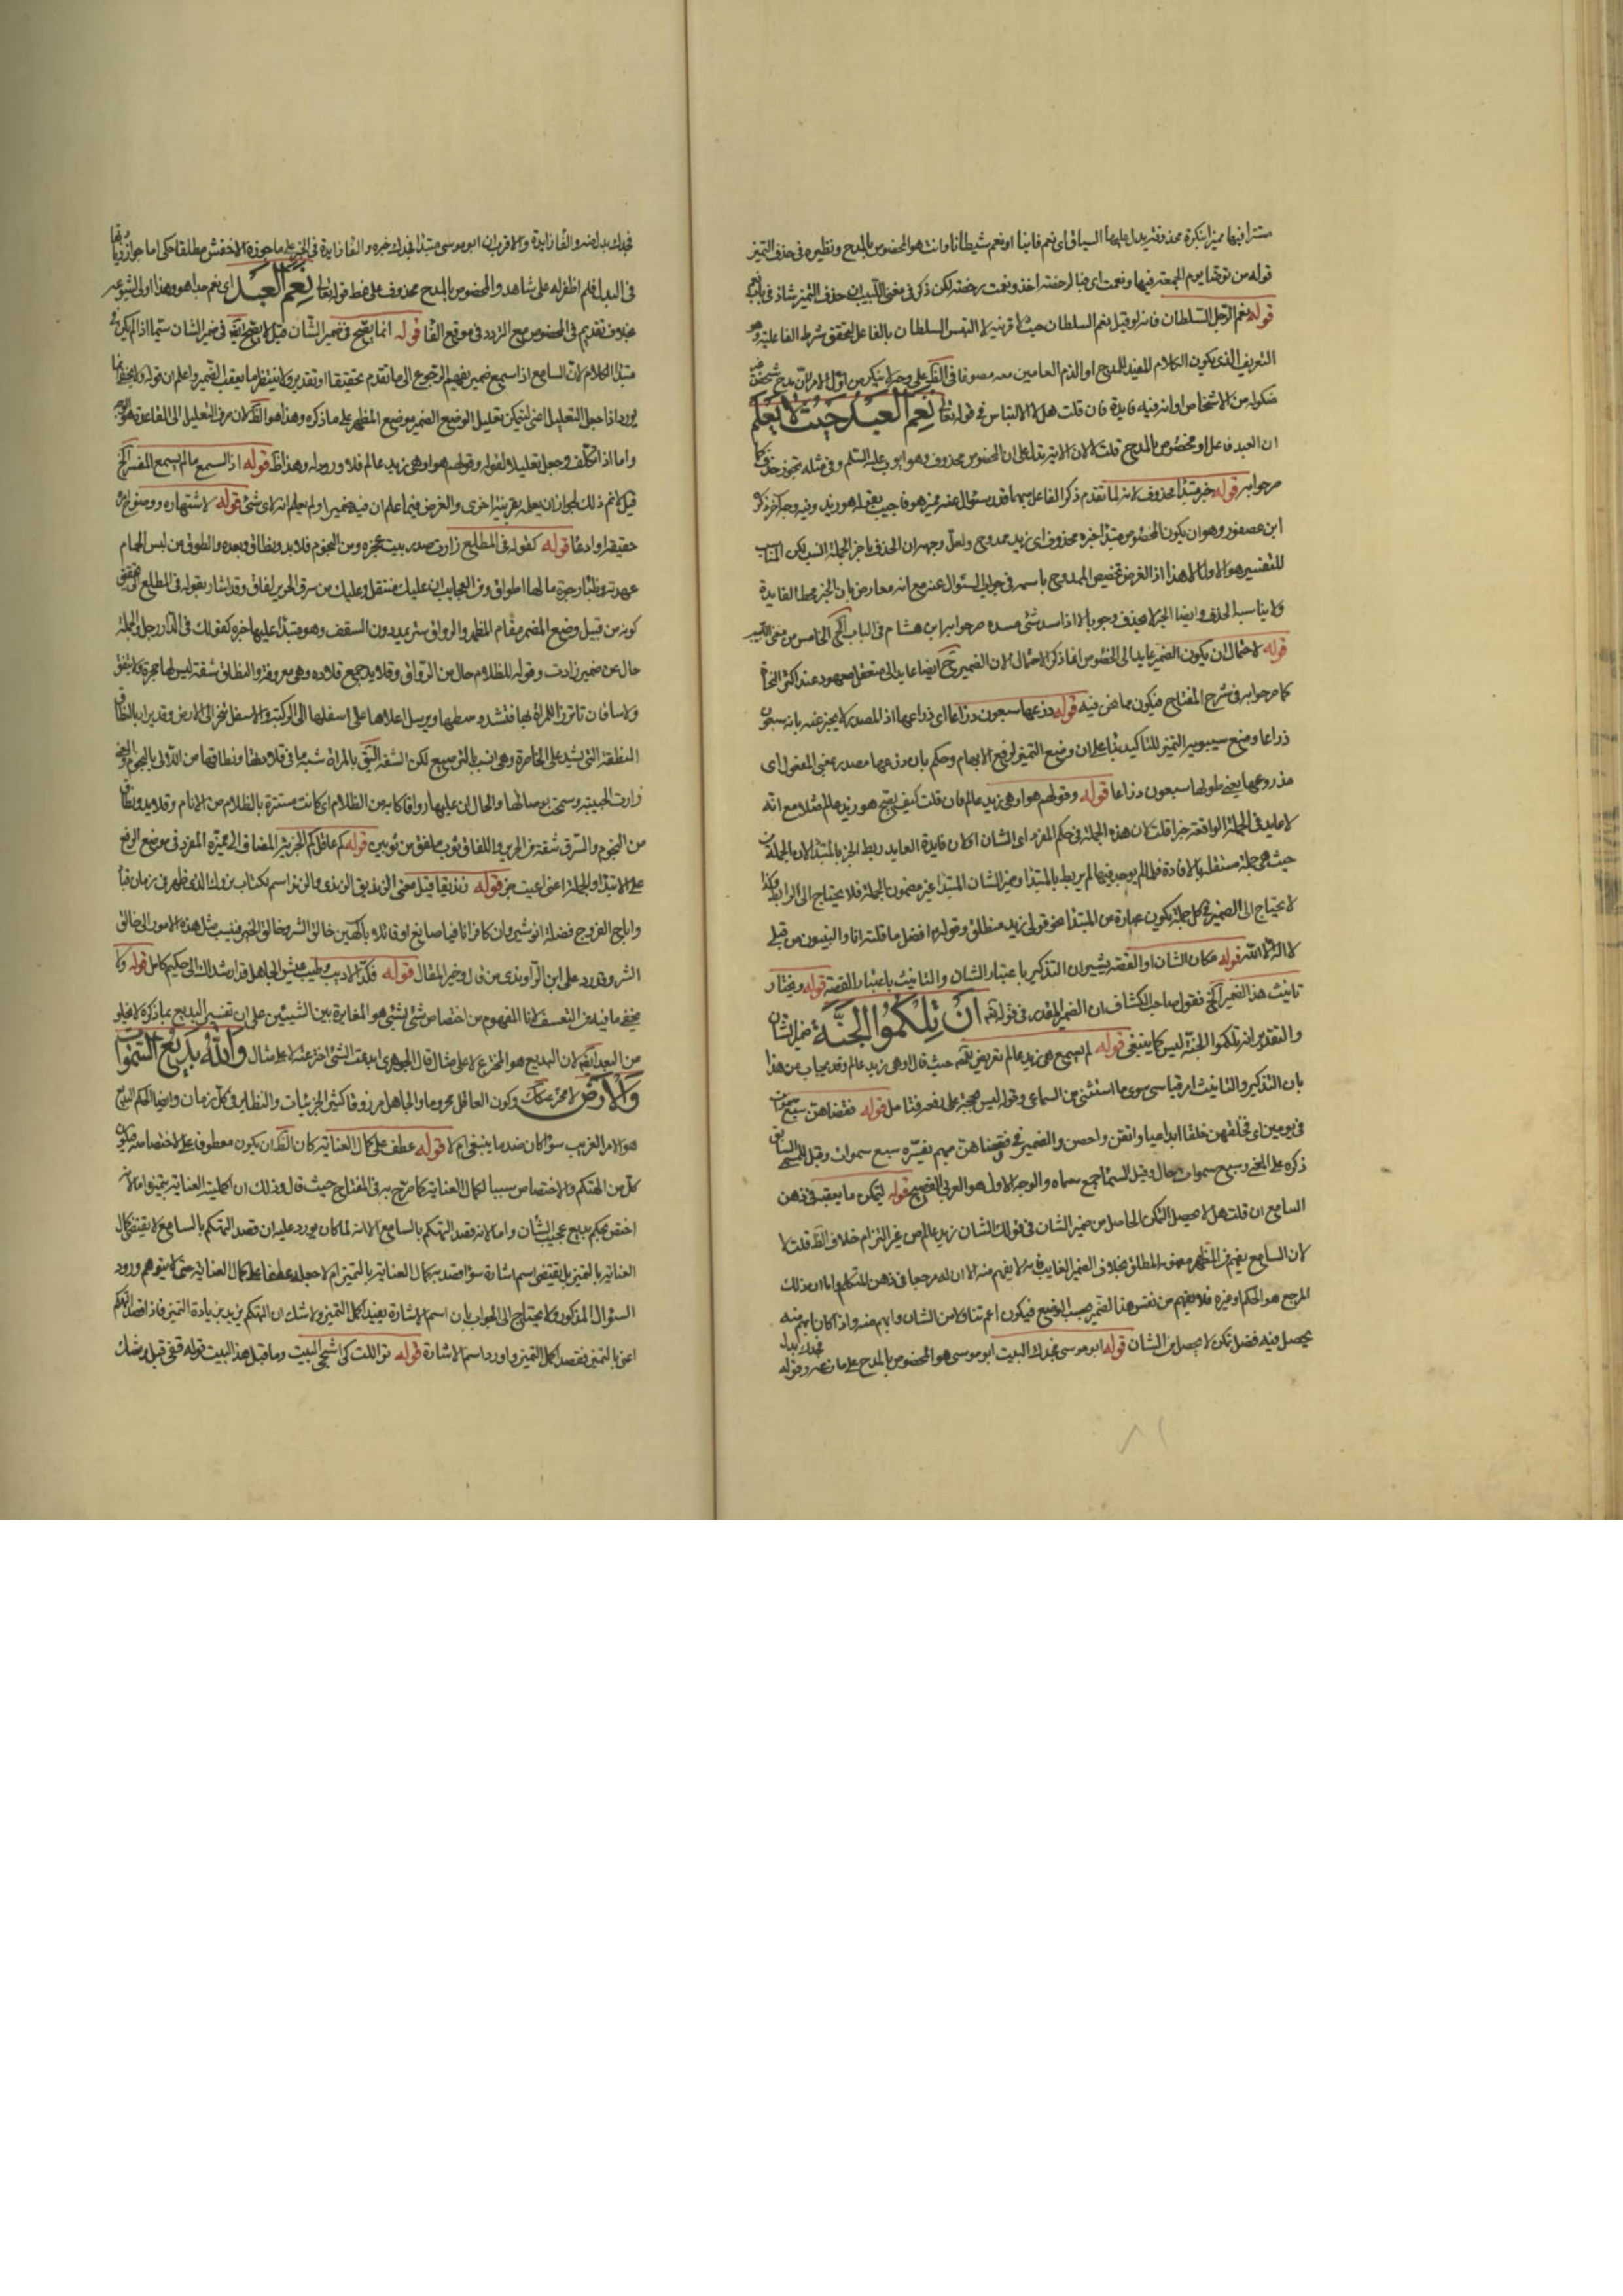 مستترا فيها مميزا بنكرة محذوفة يدل عليها السياق اى نعم فانيا او نعم شيطانا وانت هو المخصوص بالمدح ونظيره فى حذف التميز
قوله من توضا يوم الجمعة فيها ونعمت اى فبالرخصة اخذ ونعمت رخصة لكن ذكر فى مغنى اللبيب ان حذف التميز شاذ فى باب نعم
قوله نعم الرجل السلطان فانه لو قيل نعم السلطان حيث لا قرينة لا التبس السلطان بالفاعل لتحقق شرط الفاعلية وهو
التعريف الذى يكون الكلام المفيد للمدح او الذم العامين معه مصوغا فى
منكرا من الاشخاص وانه فيه فايدة فان قلت هلا الالتباس فى قوله تعالى نعم العبد حيث لا يعلم
ان العبد فاعل او مخصوص بالمدح قلت لا لان الاية تدل على ان المخصوص محذوف وهو ايوب عليه السلم وفى مثله تجوز حذف
صرحوا به قوله خبر مبتدا محذوف لانه لما تقدم ذكر الفاعل مبهما قدر سؤال عنه من هو فاجيب بقوله هو زيد وفيه وجه آخر ذكره
ابن عصفور وهو ان يكون المخصوص مبتدا خبره محذوف اى زيد ممدوح ولعل وجهه ان الحذف باخر الجملة انسب لكن المناسب
للتفسير هو الاول لا هذا اذ الغرض تخصيص الممدوح باسمه فى جواب السؤال عنه مع انه معارض بان الخبر محط الفايدة
ولا يناسب الحذف وايضا الخبر لا يحذف وجوبا الا اذا سد شئ مسده صرح به ابن هشام فى الباب الخامس من مغنى اللبيب
قوله لاحتمال ان يكون الضمير عايدا الى المخصوص انما ذكر الاحتمال لان الضمير ح ايضا عايد الى متعقل معهود عند اكثر النحاة
كما صرحوا به فى شرح المفتاح فيكون مما نحن فيه قوله ذرعها سبعون ذراعا اى ذراعها اذ المصدر لا يخبر عنه بانه سبعون
ذراعا وضع سيبويه التميز للتاكيد بناء على ان وضع التميز لرفع الابهام وحكم بان ذرعها مصدر بمعنى المفعول اى
مذروعها يعنى طولها سبعون ذراعا قوله وقولهم هو او هى زيد عالم فان قلت كيف يصح هو زيد عالم مثلا مع انه
لا عايد فى الجملة الواقعة خبرا قلت لان هذه الجملة فى حكم المفرد اى الشان او لان فايدة العايد ربط الخبر بالمبتدا لان الجملة من
حيث هى جملة مستقلة بالافادة فما لم يوجد فيها لم يربط بالمبتدا وضمير الشان المبتدا عين مضمون الجملة فلا يحتاج الى الرابط وكذا
لا يحتاج الى الضمير فى كل جملة يكون عبارة عن المبتدا نحو قولى زيد منطلق وقوله م افضل ما قلته انا والنبيون من قبلى
لا اله الا الله قوله مكان الشان او القصة يشير ان التذكير باعتبار الشان والتانيث باعتبار القصة قوله ويختار
تانيث هذا الضمير الخ فقول صاحب الكشاف ان الضمير المقدر فى قوله تعالى ان تلكموا الجنة ضمير الشان
والتقدير انه تلكموا الجنة ليس كما ينبغى قوله لم يسمع هى زيد عالم تعريض للمصـ حيث قال او هى زيد عالم وقد يجاب عن هذا
بان التذكير والتانيث امر قياسى سوى ما استثنى من السماعى وقوله ليس حجة على نفعه فتامل قوله فقضاهن سبع سموات
فى يومين اى فخلقهن خلقا ابداعيا واتقن واحصن والضمير فى فقضاهن مبهم يفسره سبع سموات وقيل للسماء السابق
ذكره على المعنى وسبع سموات حال وقيل السماء جمع سماه والوجه الاول هو العربى الفصيح قوله ليتمكن ما يعقبه فى ذهن
السامع ان قلت هلا يحصل التمكن الحاصل من ضمير الشان فى قولك الشان زيد عالم من غير التزام خلاف الظ قلت لا
لان السامع يفهم من المظهر مفهومه المطلق بخلاف الضمير الغايب فانه لا يفهم منه الا ان له مرجعا فى ذهن المتكلم واما ان ذلك
المرجع هو الحكم او غيره فلا يفهم من نفس هذا الضمير بحسب الوضع فيكون اعم تناولا من الشان وابهم منه واذا كان ابهم منه
يحصل فيه فضل تمكن لا يحصل فى الشان قوله ابو موسى فجدك البيت ابو موسى هو المخصوص بالمدح على ما نص وقوله
فجدك بدل
فجدك بدل منه والفا زايدة والاقرب ان ابو موسى مبتدا فجدك خبره والفا زايدة فى الخبر على ما جوزه الاخفش مطلقا حكى اما جواز زيادتها
فى البدل فلم اظفر له على شاهد والمخصوص بالمدح محذوف على نمط قوله تعالى نعم العبد اى نعم جدا هو وهذا اولى لشيوعه
بخلاف تقديم فى المخصوص مع التردد فى موقع الفا قوله انما يصح فى ضمير الشان قيل لا يصح ايضا فى ضمير الشان سيما اذا لم يكن فى
مبتدا الكلام لان السامع اذا سمع ضمير يفهم الرجوع الى ما تقدم تحقيقا او تقديرا ولا ينتظر ما يعقب الضمير واعلم ان قوله ولا يخفى انما
يورد اذا جعل التعليل اعنى ليتمكن تعليل الوضع الضمير موضع المظهر على ما ذكره وهذا هو الظ لان صرف التعليل الى القاعدة هو الوجه
واما اذا تكلف وجعل تعليلا لقوله وقولهم هو او هى زيد عالم فلا ورود له وهذا ظ قوله اذ السمع مالم يسمع المفسر الخ
قيل لا نم ذلك لجواز ان يعلم بقرينة اخرى والغرض فيما علم ان فيه ضميرا ولم يعلم انه لاى شئ قوله لاشتهاره ووضوح امره
حقيقة او ادعاء قوله كقوله فى المطلع زارت صدر بيت عجزه ومن النجوم قلايد ونطاق وبعده والطوق من لبس الحمام
عهدته وظباء وجرة ما لها اطواق ومن العجايب ان عليك منتقل وعليك من سرق الحرير لفاق وقد اشار بقوله فى المطلع الى تحقيق
كونه من قبيل وضع المضمر مقام المظهر والرواق ستر يمد دون السقف وهو مبتدا عليها خبره كقولك فى الدار رجل والجملة
حال من ضمير زارت وقوله للظلام حال من الرواق وقلايد جمع قلاده وهى معروفة والنطاق شقة ليس لها حجزة ولا نيفق
ولا ساقان تاتزر المراة بها فتشد وسطها ويرسل اعلاها على اسفلها الى الركبة والاسفل ينجر الى الارض وقد يراد بالنطاق
المنطقة التى تشد على الخاصرة وهى انسب بالترصيع لكن الشقة اليق بالمراة شبه ما فى قلادتها ونطاقها من اللالى بالنجوم والمعنى
زارت الحبيبة وسمحت بوصالها والحال ان عليها رواقا كاينا من الظلام اى كانت مستترة بالظلام من الانام وقلايد ونطاق
من النجوم والسرق شقة من الحرير واللفاق ثوب ملفق من ثوبين قوله كم عاقل كم الخبرية المضاف الى مميزه المفرد فى موضع الرفع
على الابتداء والجملة اعنى اعيت خبر قوله زنديقا قيل معنى الزنديق الزندى والزند اسم لكتاب مزدك الذى ظهر فى زمان قباد
واباح الفروج فضله انوشيروان كافرا نافيا صانع او قائلا بآلهين خالق الشر وخالق الخير فنسب مثل هذه الامور الى خالق
الشر وقد رد على ابن الراوندى من قال وخير المقال قوله نكد الاديب وطيب عيش الجاهل قد ارشداك الى حكيم كامل قوله ولا
يخفى ما فيه من التعسف لانا المفهوم من اختصاص شئ بشئ هو المغايرة بين الشيئين على ان تفسير البديع بما ذكره لا يخلو
من البعد ايضا لان البديع هو المخترع لا على مثال قال الجوهرى ابدعت الشئ اخترعته لا على مثال والله بديع السموات
والارض وكون العاقل محروما والجاهل مرزوقا كثير الجزئيات والنظاير فى كل زمان وايضا الحكم البديع
هو الامر الغريب سواء كان ضد ما ينبغى ام لا قوله عطف على كمال العناية كان الظ ان يكون معطوفا على لاختصاصه فيكون
كل من التهكم والاختصاص سببا لكمال العناية كما صرح به فى المفتاح حيث قال وذلك ان اكملية العناية بتميزه اما لانه
اختص بحكم بديع عجيب الشان واما لانه قصد التهكم بالسامع الا انه لما كان يورد عليه ان قصد التهكم بالسامع لا يقتضى كمال
العناية بالتميز بل يقتضى اسم اشارة سواء قصد به كمال العناية بالتميز ام لا جعله عطفا على كمال العناية حتى لا يتوهم ورود
السؤال المذكور ولا يحتاج الى الجواب بان اسم الاشارة يفيد اكمل التميز ولا شك ان التهكم يزيد بزيادة التميز فاذا قصد التهكم
اعنى بالتميز فقصد اكمل التميز واورد اسم الاشارة قوله تعاللت كى اشجى البيت وما قبل هذا البيت قوله قفى قبل وشك